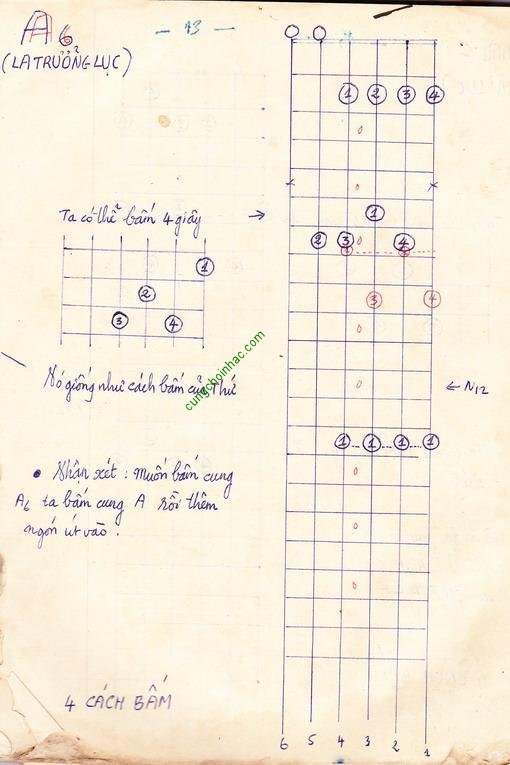 A6
- 13 -
(LA TRƯỞNG LỤC)
1 2 3 4
Ta có thể bấm 4 giây →
1
2 3 4
1
2
3 4
3 4
Nó giống như cách bấm của Thứ
cungchoinhac.com
← N12
1 1 1 1
• Nhận xét : Muốn bấm cung
A6 ta bấm cung A rồi thêm
ngón út vào .
4 CÁCH BẤM
6 5 4 3 2 1